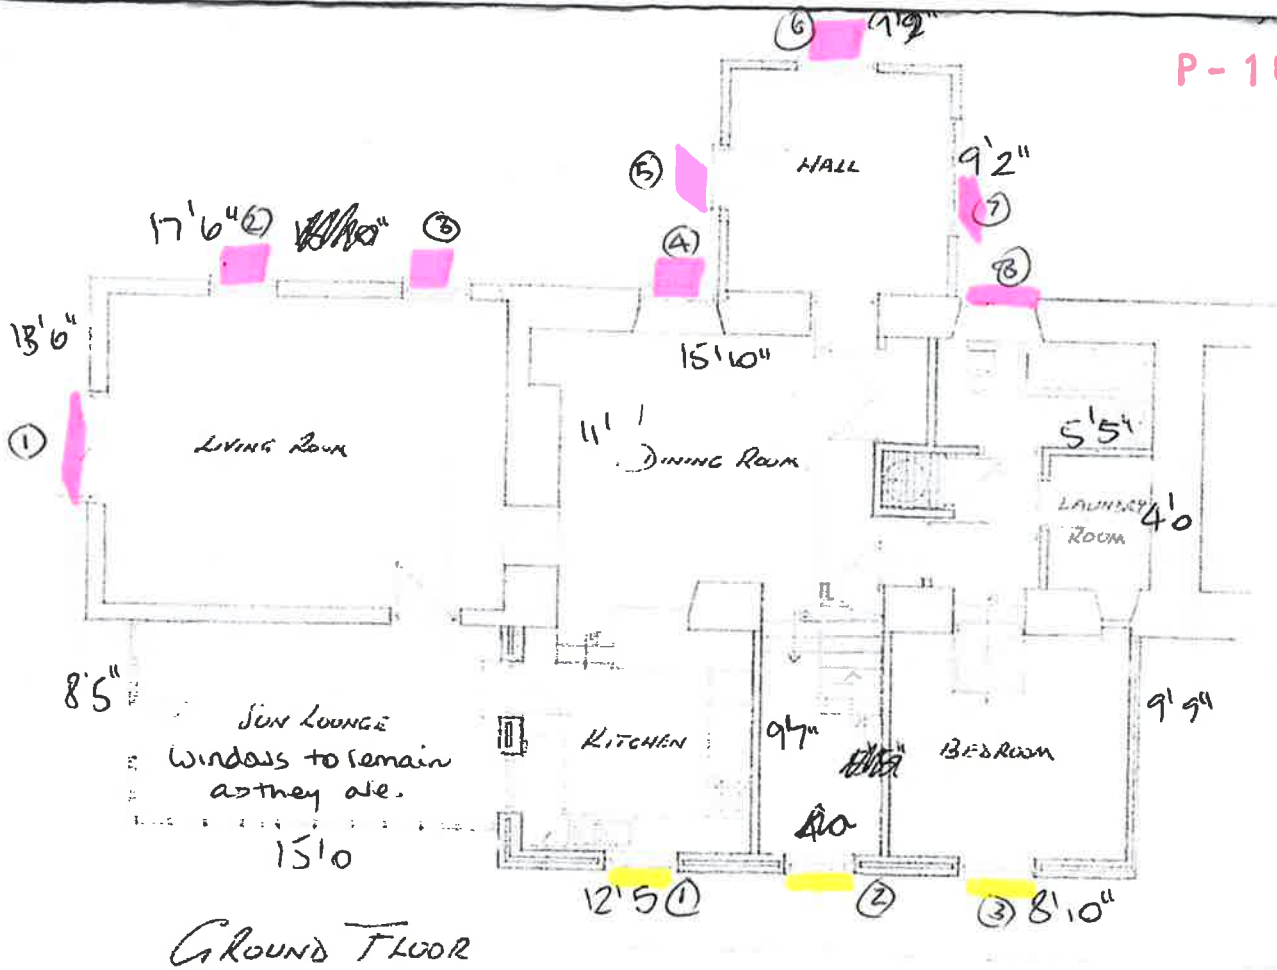 ⑥ 7'2"
P-1
HALL
⑤
9'2"
⑦
17'6" ② ③
④
⑧
13'6"
15'10"
①
LIVING ROOM
11'
DINING ROOM
5'5"
LAUNDRY
ROOM
4'0
8'5"
SUN LOUNGE
Windows to remain
as they are.
KITCHEN
9'7"
BEDROOM
9'9"
15'0
12'5 ① ② ③ 8'10"
GROUND FLOOR